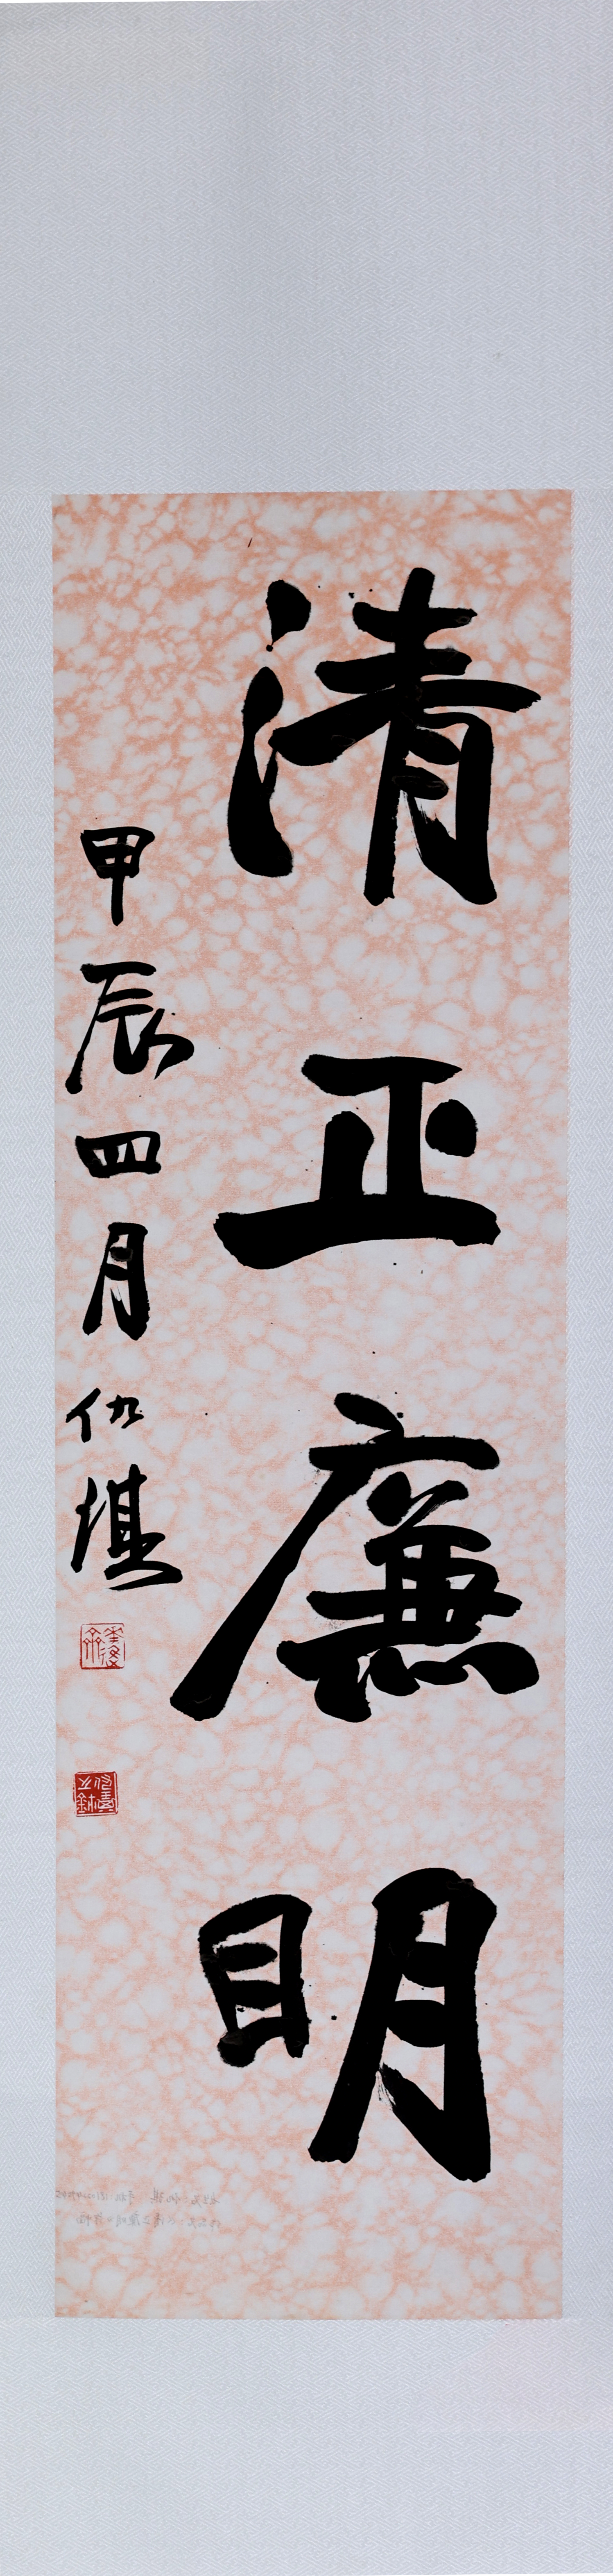 清正廉明
甲辰四月仇堪